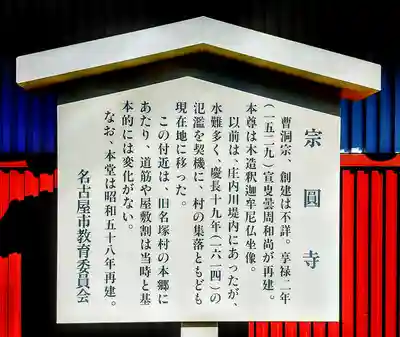 宗圓寺
曹洞宗、創建は不詳。享禄二年
(一五二九)宣叟曇周和尚が再建。
本尊は木造釈迦牟尼仏坐像。
以前は、庄内川堤内にあったが、
水難多く、慶長十九年(一六一四)の
氾濫を契機に、村の集落ともども
現在地に移った。
この付近は、旧名塚村の本郷に
あたり、道筋や屋敷割は当時と基
本的には変化がない。
なお、本堂は昭和五十八年再建。
名古屋市教育委員会